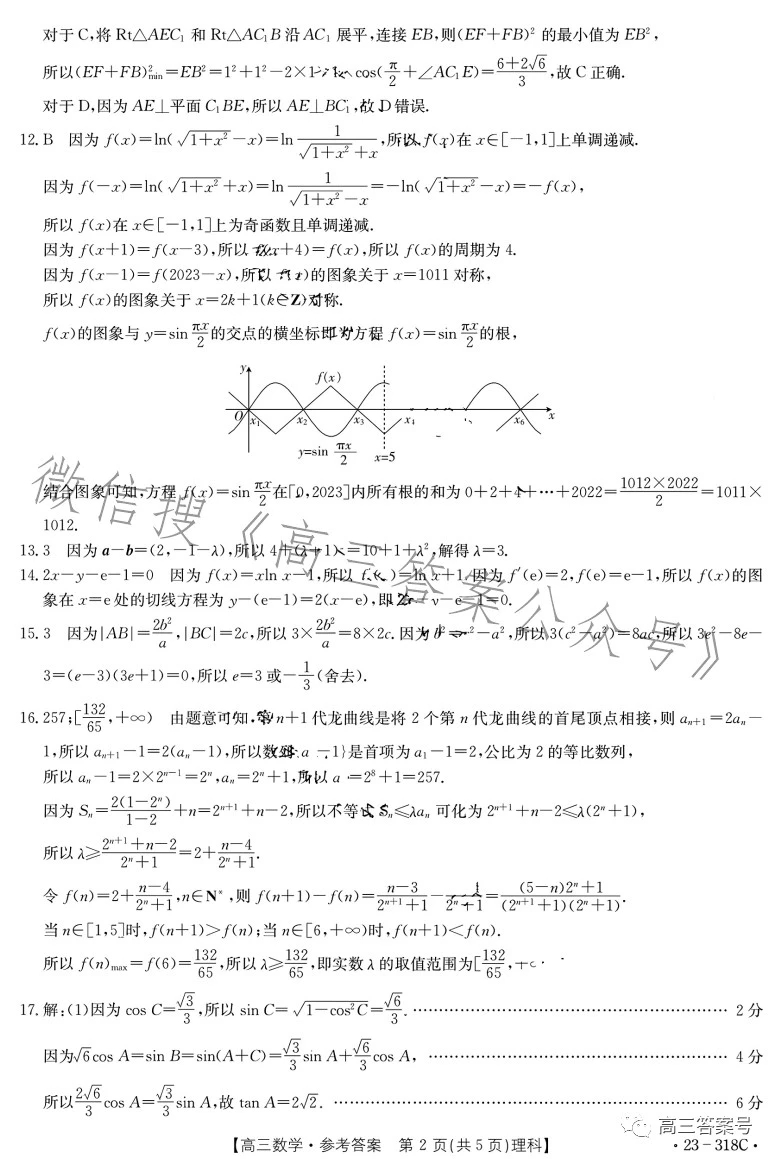 对于C,将Rt△AEC₁和Rt△AC₁B沿AC₁展平,连接EB,则(EF+FB)²的最小值为EB²,
所以(EF+FB)²min=EB²=1²+1²-2×1×1× cos(π/2+∠AC₁E)=(6+2√6)/3,故C正确.
对于D,因为AE⊥平面C₁BE,所以AE⊥BC₁,故D错误.
12.B 因为f(x)=ln(√(1+x²)-x)=ln 1/(√(1+x²)+x),所以f(x)在x∈[-1,1]上单调递减.
因为f(-x)=ln(√(1+x²)+x)=ln 1/(√(1+x²)-x)=-ln(√(1+x²)-x)=-f(x),
所以f(x)在x∈[-1,1]上为奇函数且单调递减.
因为f(x+1)=f(x-3),所以f(x+4)=f(x),所以f(x)的周期为4.
因为f(x-1)=f(2023-x),所以f(x)的图象关于x=1011对称,
所以f(x)的图象关于x=2k+1(k∈Z)对称.
f(x)的图象与y=sin πx/2的交点的横坐标即为方程f(x)=sin πx/2的根,
y
f(x)
O x₁ x₂ x₃ x₄ x₆ x
y=sin πx/2 x=5
结合图象可知,方程f(x)=sin πx/2在[0,2023]内所有根的和为0+2+4+…+2022=(1012×2022)/2=1011×
1012.
13.3 因为a-b=(2,-1-λ),所以4+(λ+1)²=10+1+λ²,解得λ=3.
14.2x-y-e-1=0 因为f(x)=xln x-1,所以f′(x)=ln x+1.因为f′(e)=2,f(e)=e-1,所以f(x)的图
象在x=e处的切线方程为y-(e-1)=2(x-e),即2x-y-e-1=0.
15.3 因为|AB|=2b²/a,|BC|=2c,所以3×2b²/a=8×2c.因为b²=c²-a²,所以3(c²-a²)=8ac,所以3e²-8e-
3=(e-3)(3e+1)=0,所以e=3或-1/3(舍去).
16.257;[132/65,+∞) 由题意可知,第n+1代龙曲线是将2个第n代龙曲线的首尾顶点相接,则aₙ₊₁=2aₙ-
1,所以aₙ₊₁-1=2(aₙ-1),所以数列{aₙ-1}是首项为a₁-1=2,公比为2的等比数列,
所以aₙ-1=2×2ⁿ⁻¹=2ⁿ,aₙ=2ⁿ+1,所以a =2⁸+1=257.
因为Sₙ=2(1-2ⁿ)/(1-2)+n=2ⁿ⁺¹+n-2,所以不等式Sₙ≤λaₙ可化为2ⁿ⁺¹+n-2≤λ(2ⁿ+1),
所以λ≥(2ⁿ⁺¹+n-2)/(2ⁿ+1)=2+(n-4)/(2ⁿ+1).
令f(n)=2+(n-4)/(2ⁿ+1),n∈N*,则f(n+1)-f(n)=(n-3)/(2ⁿ⁺¹+1)-(n-4)/(2ⁿ+1)=((5-n)2ⁿ+1)/((2ⁿ⁺¹+1)(2ⁿ+1)).
当n∈[1,5]时,f(n+1)>f(n);当n∈[6,+∞)时,f(n+1)<f(n).
所以f(n)max=f(6)=132/65,所以λ≥132/65,即实数λ的取值范围为[132/65,+∞
17.解:(1)因为cos C=√3/3,所以sin C=√(1-cos²C)=√6/3. …… 2分
因为√6cos A=sin B=sin(A+C)=√3/3 sin A+√6/3 cos A, …… 4分
所以2√6/3 cos A=√3/3 sin A,故tan A=2√2. …… 6分
【高三数学·参考答案 第2页(共5页)理科】 ·23-318C·
微信搜《高三答案公众号》
高三答案号